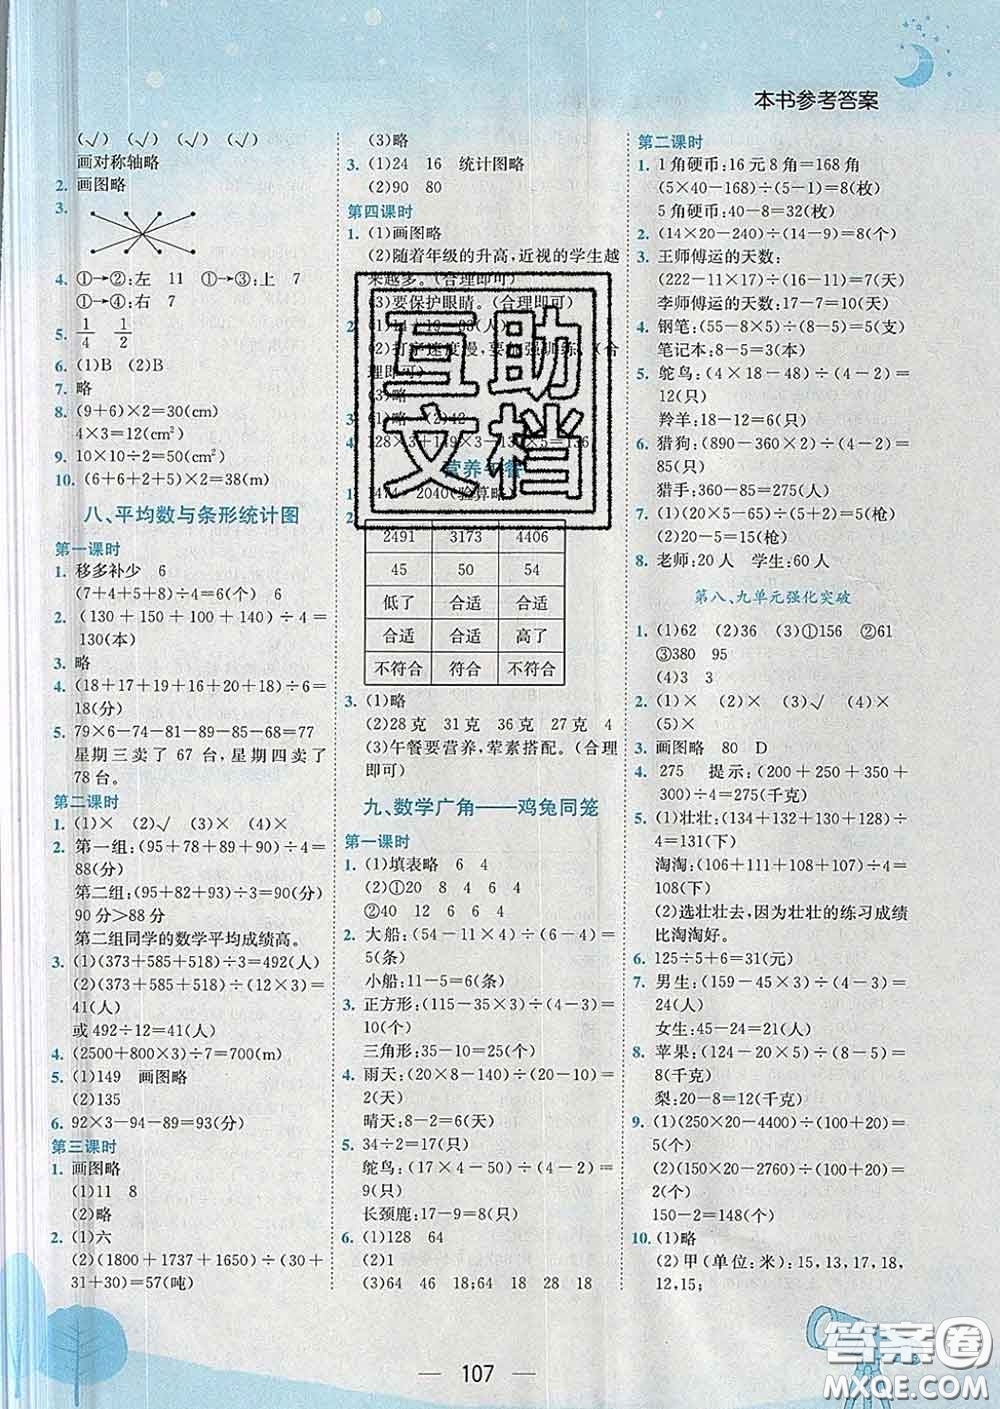 本书参考答案
(√) (√) (√) (√)
画对称轴略
2. 画图略
3.
4. ①→②:左 11 ①→③:上 7
①→④:右 7
5. 1/4 1/2
6. (1)B (2)B
7. 略
8. (9+6)×2=30(cm)
4×3=12(cm²)
9. 10×10=100(cm²)
10. (6+6+2+5)×2=38(m)
八、平均数与条形统计图
第一课时
1. 移多补少 6
(7+4+5+8)÷4=6(个) 6
2. (130+150+100+140)÷4=
130(本)
3. 略
4. (18+17+19+16+20+18)÷6=
18(分)
5. 79×6-74-81-89-85-68=77
星期三卖了 67 台,星期四卖了
78 台。
第二课时
1. (1)× (2)√ (3)× (4)×
2. 第一组:(95+78+89+90)÷4=
88(分)
第二组:(95+82+93)÷3=90(分)
90分>88分
第二组同学的数学平均成绩高。
3. (1)(373+585+518)÷3=492(人)
(2)(373+585+518)÷(12×3)=
41(人)
或 492÷12=41(人)
4. (2500+800×3)÷7=700(m)
5. (1)149 画图略
(2)135
6. 92×3-94-89=93(分)
第三课时
1. 画图略
(1)11 8
(2)略
2. (1)六
(2)(1800+1737+1650)÷(30+
31+30)=57(吨)
(3)略
3. (1)24 16 统计图略
(2)90 80
第四课时
1. (1)画图略
(2)随着年级的升高,近视的学生越
来越多。(合理即可)
(3)要保护眼睛。(合理即可)
2. (1)14+19=33(人)
(2)打字速度慢,要加强训练。(合
理即可)
(3)略
3. (1)略 (2)42
4. 128×3+119×3-
×5=136
营养午餐
1.
2040(验算略)
2.
2491 3173 4406
45 50 54
低了 合适 合适
合适 合适 高了
不符合 符合 不符合
3. (1)略
(2)28克 31克 36克 27克 4
(3)午餐要营养,荤素搭配。(合理
即可)
九、数学广角——鸡兔同笼
第一课时
1. (1)填表略 6 4
(2)①20 8 4 2 4
②40 12 6 6 4
2. 大船:(54-11×4)÷(6-4)=
5(条)
小船:11-5=6(条)
3. 正方形:(115-35×3)÷(4-3)=
10(个)
三角形:35-10=25(个)
4. 雨天:(20×8-4)÷(20-10)=
2(天)
晴天:8-2=6(天)
5. 34÷2=17(只)
鸵鸟:(17×4-50)÷(4-2)=
9(只)
长颈鹿:17-9=8(只)
6. (1)128 64
(2)1
(3)64 46 18;64 18 28 18
第二课时
1. 1角硬币:16元8角=168角
(5×40-168)÷(5-1)=8(枚)
5角硬币:40-8=32(枚)
2. (14×20-240)÷(14-9)=8(个)
3. 王师傅运的天数:
(222-11×17)÷(16-11)=7(天)
李师傅运的天数:17-7=10(天)
4. 钢笔:(55-8×5)÷(8-5)=5(支)
笔记本:8-5=3(本)
5. 鸵鸟:(4×18-48)÷(4-2)=
12(只)
羚羊:18-12=6(只)
6. 猎狗:(890-360×2)÷(4-2)=
85(只)
猎手:360-85=275(名)
7. (1)(20×5-90)÷(5-3)=5(枪)
(2)20-5=15(枪)
8. 老师:20人 学生:60人
第八、九单元强化突破
1. (1)62 (2)36 (3)①156 ②61
③380 95
(4)3 3
2. (1)× (2)√ (3)× (4)×
(5)×
3. 画图略 80 D
4. 275 提示:(250+280+320+
250)÷4=275(千克)
5. (1)壮壮:(134+132+130+128)÷
4=131(下)
淘淘:(106+111+108+107)÷4=
108(下)
(2)选壮壮去,因为壮壮的练习成绩
比淘淘好。
6. 125÷5+6=31(元)
7. 男生:(159-45×3)÷(4-3)=
24(人)
女生:45-24=21(人)
8. 苹果:(124-20×5)÷(8-5)=
8(千克)
梨:20-8=12(千克)
9. (1)(250×20-4500)÷(20+80)=
5(个)
(2)(150×20-2760)÷(20+100)=
2(个)
150-2=148(个)
10. (1)略
(2)甲(单位:米):15,13,17,18,
12,15;
107
互助
文档
答案圈
MXQE.COM